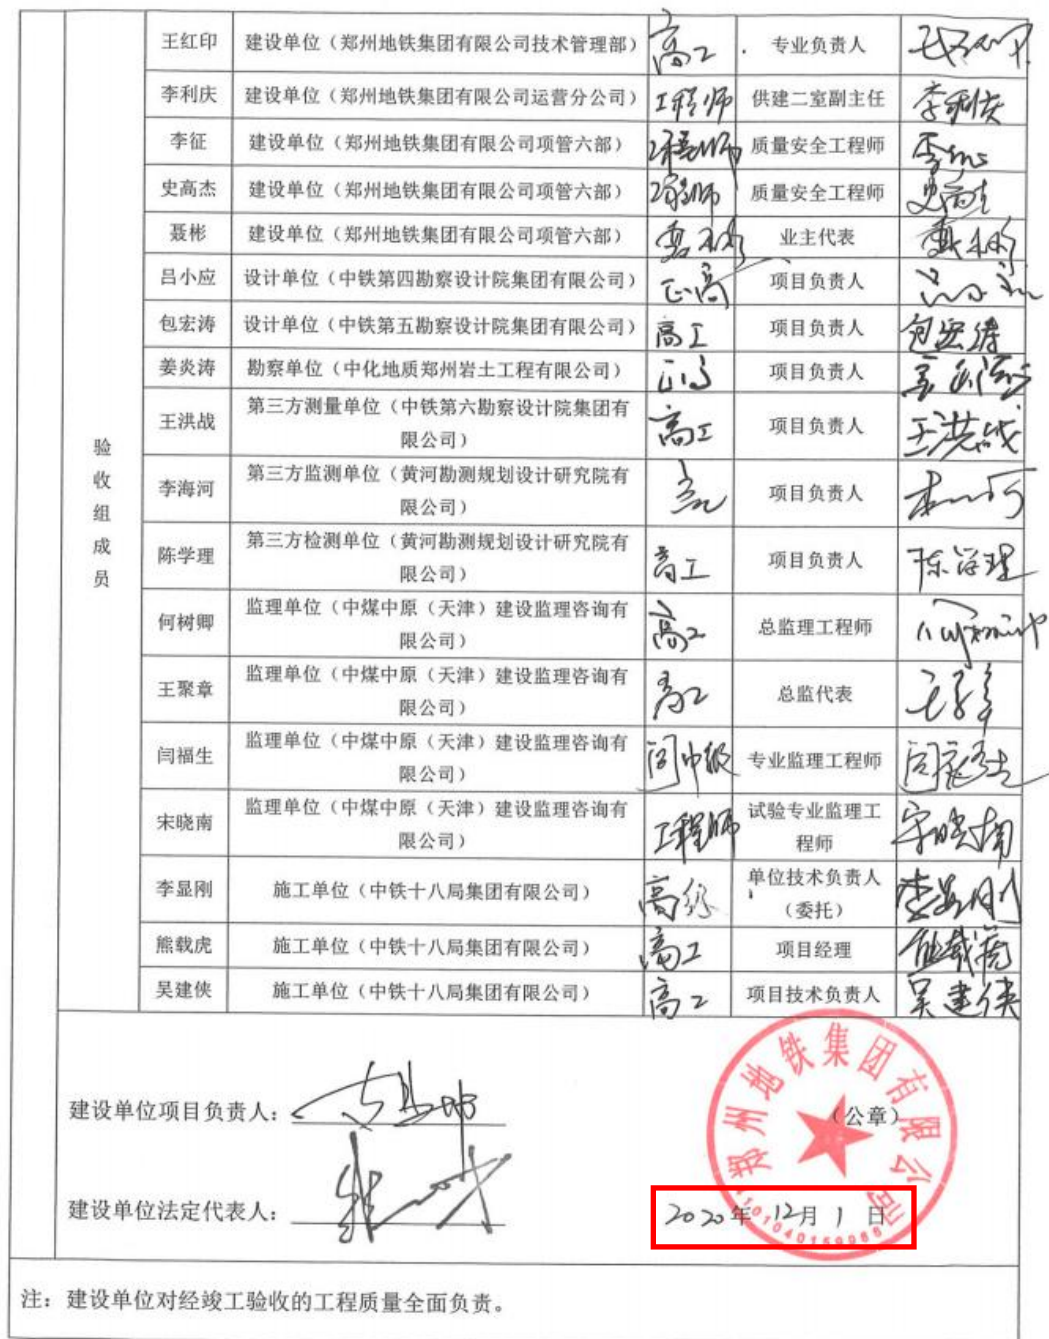 王红印 建设单位（郑州地铁集团有限公司技术管理部） 高工 专业负责人
李利庆 建设单位（郑州地铁集团有限公司运营分公司） 工程师 供建二室副主任 李利庆
李征 建设单位（郑州地铁集团有限公司项管六部） 工程师 质量安全工程师
史高杰 建设单位（郑州地铁集团有限公司项管六部） 工程师 质量安全工程师
聂彬 建设单位（郑州地铁集团有限公司项管六部） 业主代表
吕小应 设计单位（中铁第四勘察设计院集团有限公司） 正高 项目负责人
包宏涛 设计单位（中铁第五勘察设计院集团有限公司） 高工 项目负责人 包宏涛
姜炎涛 勘察单位（中化地质郑州岩土工程有限公司） 正高 项目负责人
王洪战 第三方测量单位（中铁第六勘察设计院集团有
限公司） 高工 项目负责人 王洪战
李海河 第三方监测单位（黄河勘测规划设计研究院有
限公司） 项目负责人
陈学理 第三方检测单位（黄河勘测规划设计研究院有
限公司） 高工 项目负责人 陈学理
何树卿 监理单位（中煤中原（天津）建设监理咨询有
限公司） 高工 总监理工程师
王聚章 监理单位（中煤中原（天津）建设监理咨询有
限公司） 高工 总监代表
闫福生 监理单位（中煤中原（天津）建设监理咨询有
限公司） 中级 专业监理工程师
宋晓南 监理单位（中煤中原（天津）建设监理咨询有
限公司） 工程师 试验专业监理工
程师 宋晓南
李显刚 施工单位（中铁十八局集团有限公司） 单位技术负责人
（委托） 李显刚
熊载虎 施工单位（中铁十八局集团有限公司） 高工 项目经理 熊载虎
吴建侠 施工单位（中铁十八局集团有限公司） 高工 项目技术负责人 吴建侠
验
收
组
成
员
建设单位项目负责人：
（公章）
郑州地铁集团有限公司
建设单位法定代表人：
2020年12月1日
注：建设单位对经竣工验收的工程质量全面负责。